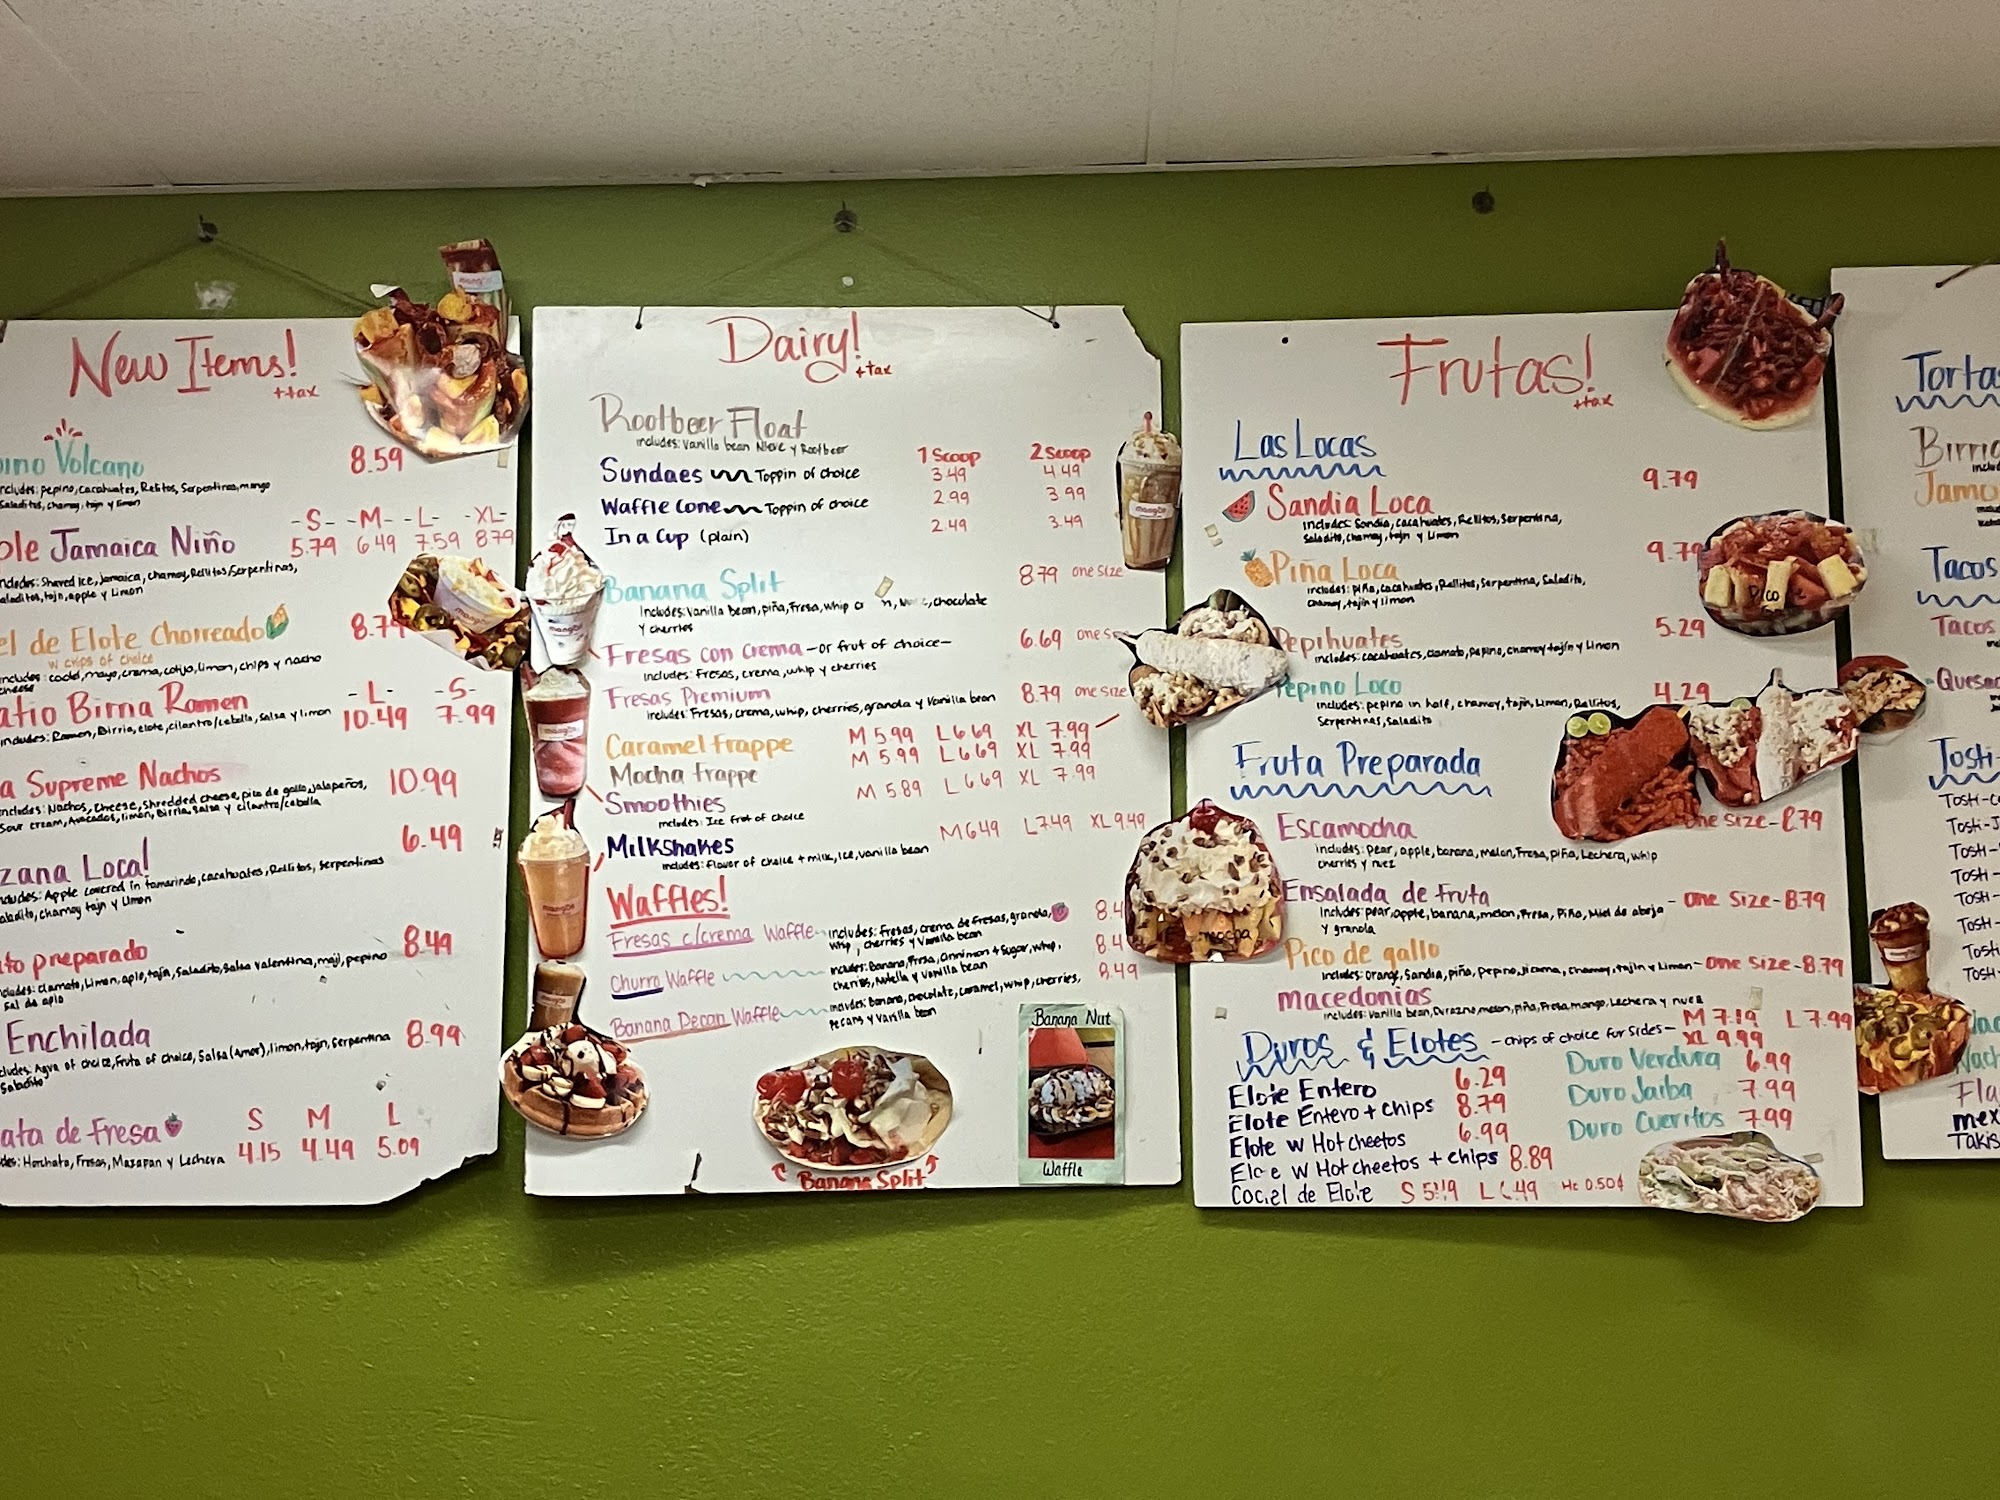 New Items!
+tax
Volcano 8.59
includes: pepino, cacahuates, Rellitos, Serpentinas, mango
Saladitos, chamoy, tajin y limon
-S- -M- -L- -XL-
Jamaica Niño 5.79 6.49 7.59 8.79
includes: Shaved Ice, Jamaica, chamoy, Rellitos, Serpentinas,
Saladitos, tajin, apple y Limon
de Elote Chorreado 8.79
w chips of choice
includes: coctel, mayo, crema, cotijo, limon, chips y nacho
cheese
-L- -S-
Birria Ramen 10.49 7.99
includes: Ramen, Birria, elote, cilantro/cebolla, salsa y limon
Supreme Nachos 10.99
includes: Nachos, cheese, shredded cheese, pico de gallo, jalapeños,
Sour cream, Avocados, limon, Birria, salsa y cilantro/cebolla
Loca! 6.49
includes: Apple covered in tamarindo, cacahuates, Rellitos, Serpentinas
Saladito, chamoy tajin y Limon
preparado 8.49
includes: clamato, Limon, apio, tajin, Saladito, Salsa valentina, magi, pepino
Sal de apio
Enchilada 8.99
Agua of choice, Fruta of choice, Salsa (Amor), limon, tajin, Serpentina
Saladito
S M L
de Fresa 4.15 4.49 5.09
Horchata, Fresas, Mazapan y Lechera
Dairy!
+tax
Rootbeer Float
includes: Vanilla bean Nieve y Rootbeer
1 Scoop 2 Scoop
Sundaes Toppin of choice 3.49 4.49
Waffle Cone Toppin of choice 2.99 3.99
In a Cup (plain) 2.49 3.49
Banana Split 8.79 one size
Includes: Vanilla Bean, piña, Fresa, whip chocolate
y cherries
Fresas con Crema -or frut of choice- 6.69 one s
includes: Fresas, crema, whip y cherries
Fresas Premium 8.79 one size
includes: Fresas, crema, whip, cherries, granola y Vanilla bean
Caramel Frappe M 5.99 L 6.69 XL 7.99
Mocha Frappe M 5.99 L 6.69 XL 7.99
Smoothies M 5.89 L 6.69 XL 7.99
includes: Ice frut of choice
Milkshakes M 6.49 L 7.49 XL 9.49
includes: flavor of choice + milk, Ice, vanilla bean
Waffles!
Fresas c/crema Waffle includes: Fresas, crema de fresas, granola, 8.4
whip, cherries y Vanilla bean
Churro Waffle includes: Banana, Fresa, Cinnimon + Sugar, whip, 8.4
cherries, Nutella y Vanilla bean
Banana Pecan Waffle includes: Banana, chocolate, caramel, whip, cherries, 8.49
pecans y Vanilla bean
Banana Split
Banana Nut
Waffle
Frutas!
+tax
Las Locas
Sandia Loca 9.79
includes: Sandia, cacahuates, Rellitos, Serpentina,
Saladito, chamoy, tajin y Limon
Piña Loca 9.79
includes: piña, cacahuates, Rellitos, Serpentina, Saladito,
chamoy, tajin y limon
Pepihuates 5.29
includes: cacahuates, clamato, pepino, chamoy tajin y Limon
Pepino Loco 4.29
includes: pepino in half, chamoy, tajin, Limon, Rellitos,
Serpentinas, saladito
Fruta Preparada
Escamocha one size-8.79
includes: pear, apple, banana, melon, Fresa, piña, Lechera, whip
cherries y nuez
Ensalada de fruta - one size-8.79
includes: pear, apple, banana, melon, Fresa, Piña, Miel de abeja
y granola
Pico de gallo
includes: orange, Sandia, piña, pepino, jicama, chamoy, tajin y Limon- one size-8.79
Macedonias
includes: vanilla bean, Durazno, melon, piña, Fresa, mango, Lechera y nuez
M 7.19 L 7.99
XL 9.99
Duros & Elotes - chips of choice for sides-
Elote Entero 6.29
Elote Entero + chips 8.79
Elote w Hot cheetos 6.99
w Hot cheetos + chips 8.89
de Elote S L
Duro Verdura 6.99
Duro Jaiba 7.99
Duro Cueritos 7.99
Tortas
Birria
Tacos
Tacos
Tosti-
Tosti-
Tosti-
Tosti-
Tosti-
Tosti-
Tosti-
Tosti-
Takis